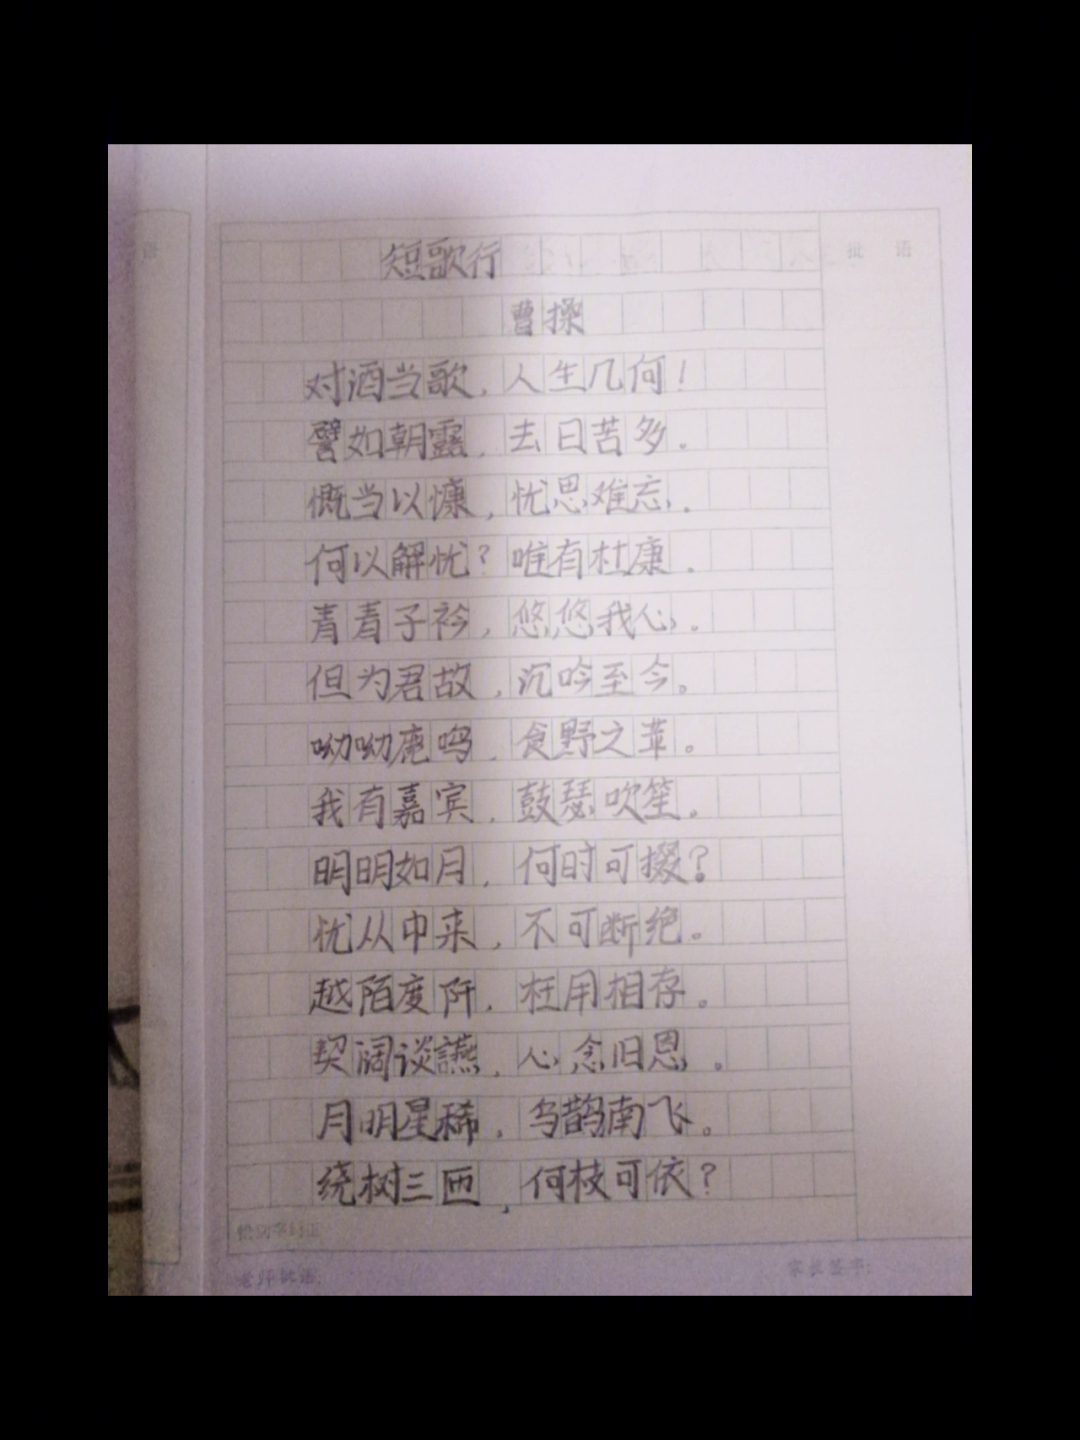 语
批 语
短歌行
曹操
对酒当歌，人生几何！
譬如朝露，去日苦多。
慨当以慷，忧思难忘。
何以解忧？唯有杜康。
青青子衿，悠悠我心。
但为君故，沉吟至今。
呦呦鹿鸣，食野之苹。
我有嘉宾，鼓瑟吹笙。
明明如月，何时可掇？
忧从中来，不可断绝。
越陌度阡，枉用相存。
契阔谈讌，心念旧恩。
月明星稀，乌鹊南飞。
绕树三匝，何枝可依？
老师批语:
家长签字: